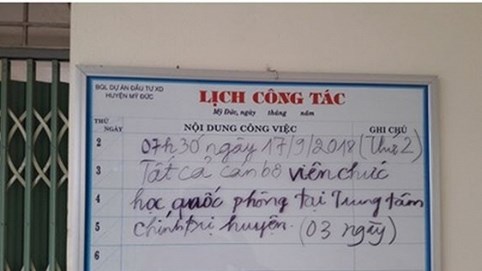 BQL DỰ ÁN ĐẦU TƯ XD
HUYỆN MỸ ĐỨC
LỊCH CÔNG TÁC
Mỹ Đức, ngày tháng năm
THỨ NGÀY
NỘI DUNG CÔNG VIỆC
GHI CHÚ
2
07h30 ngày 17/9/2018 (Thứ 2)
3
Tất cả cán bộ viên chức
4
học quốc phòng tại Trung tâm
5
chính trị huyện. (03 ngày)